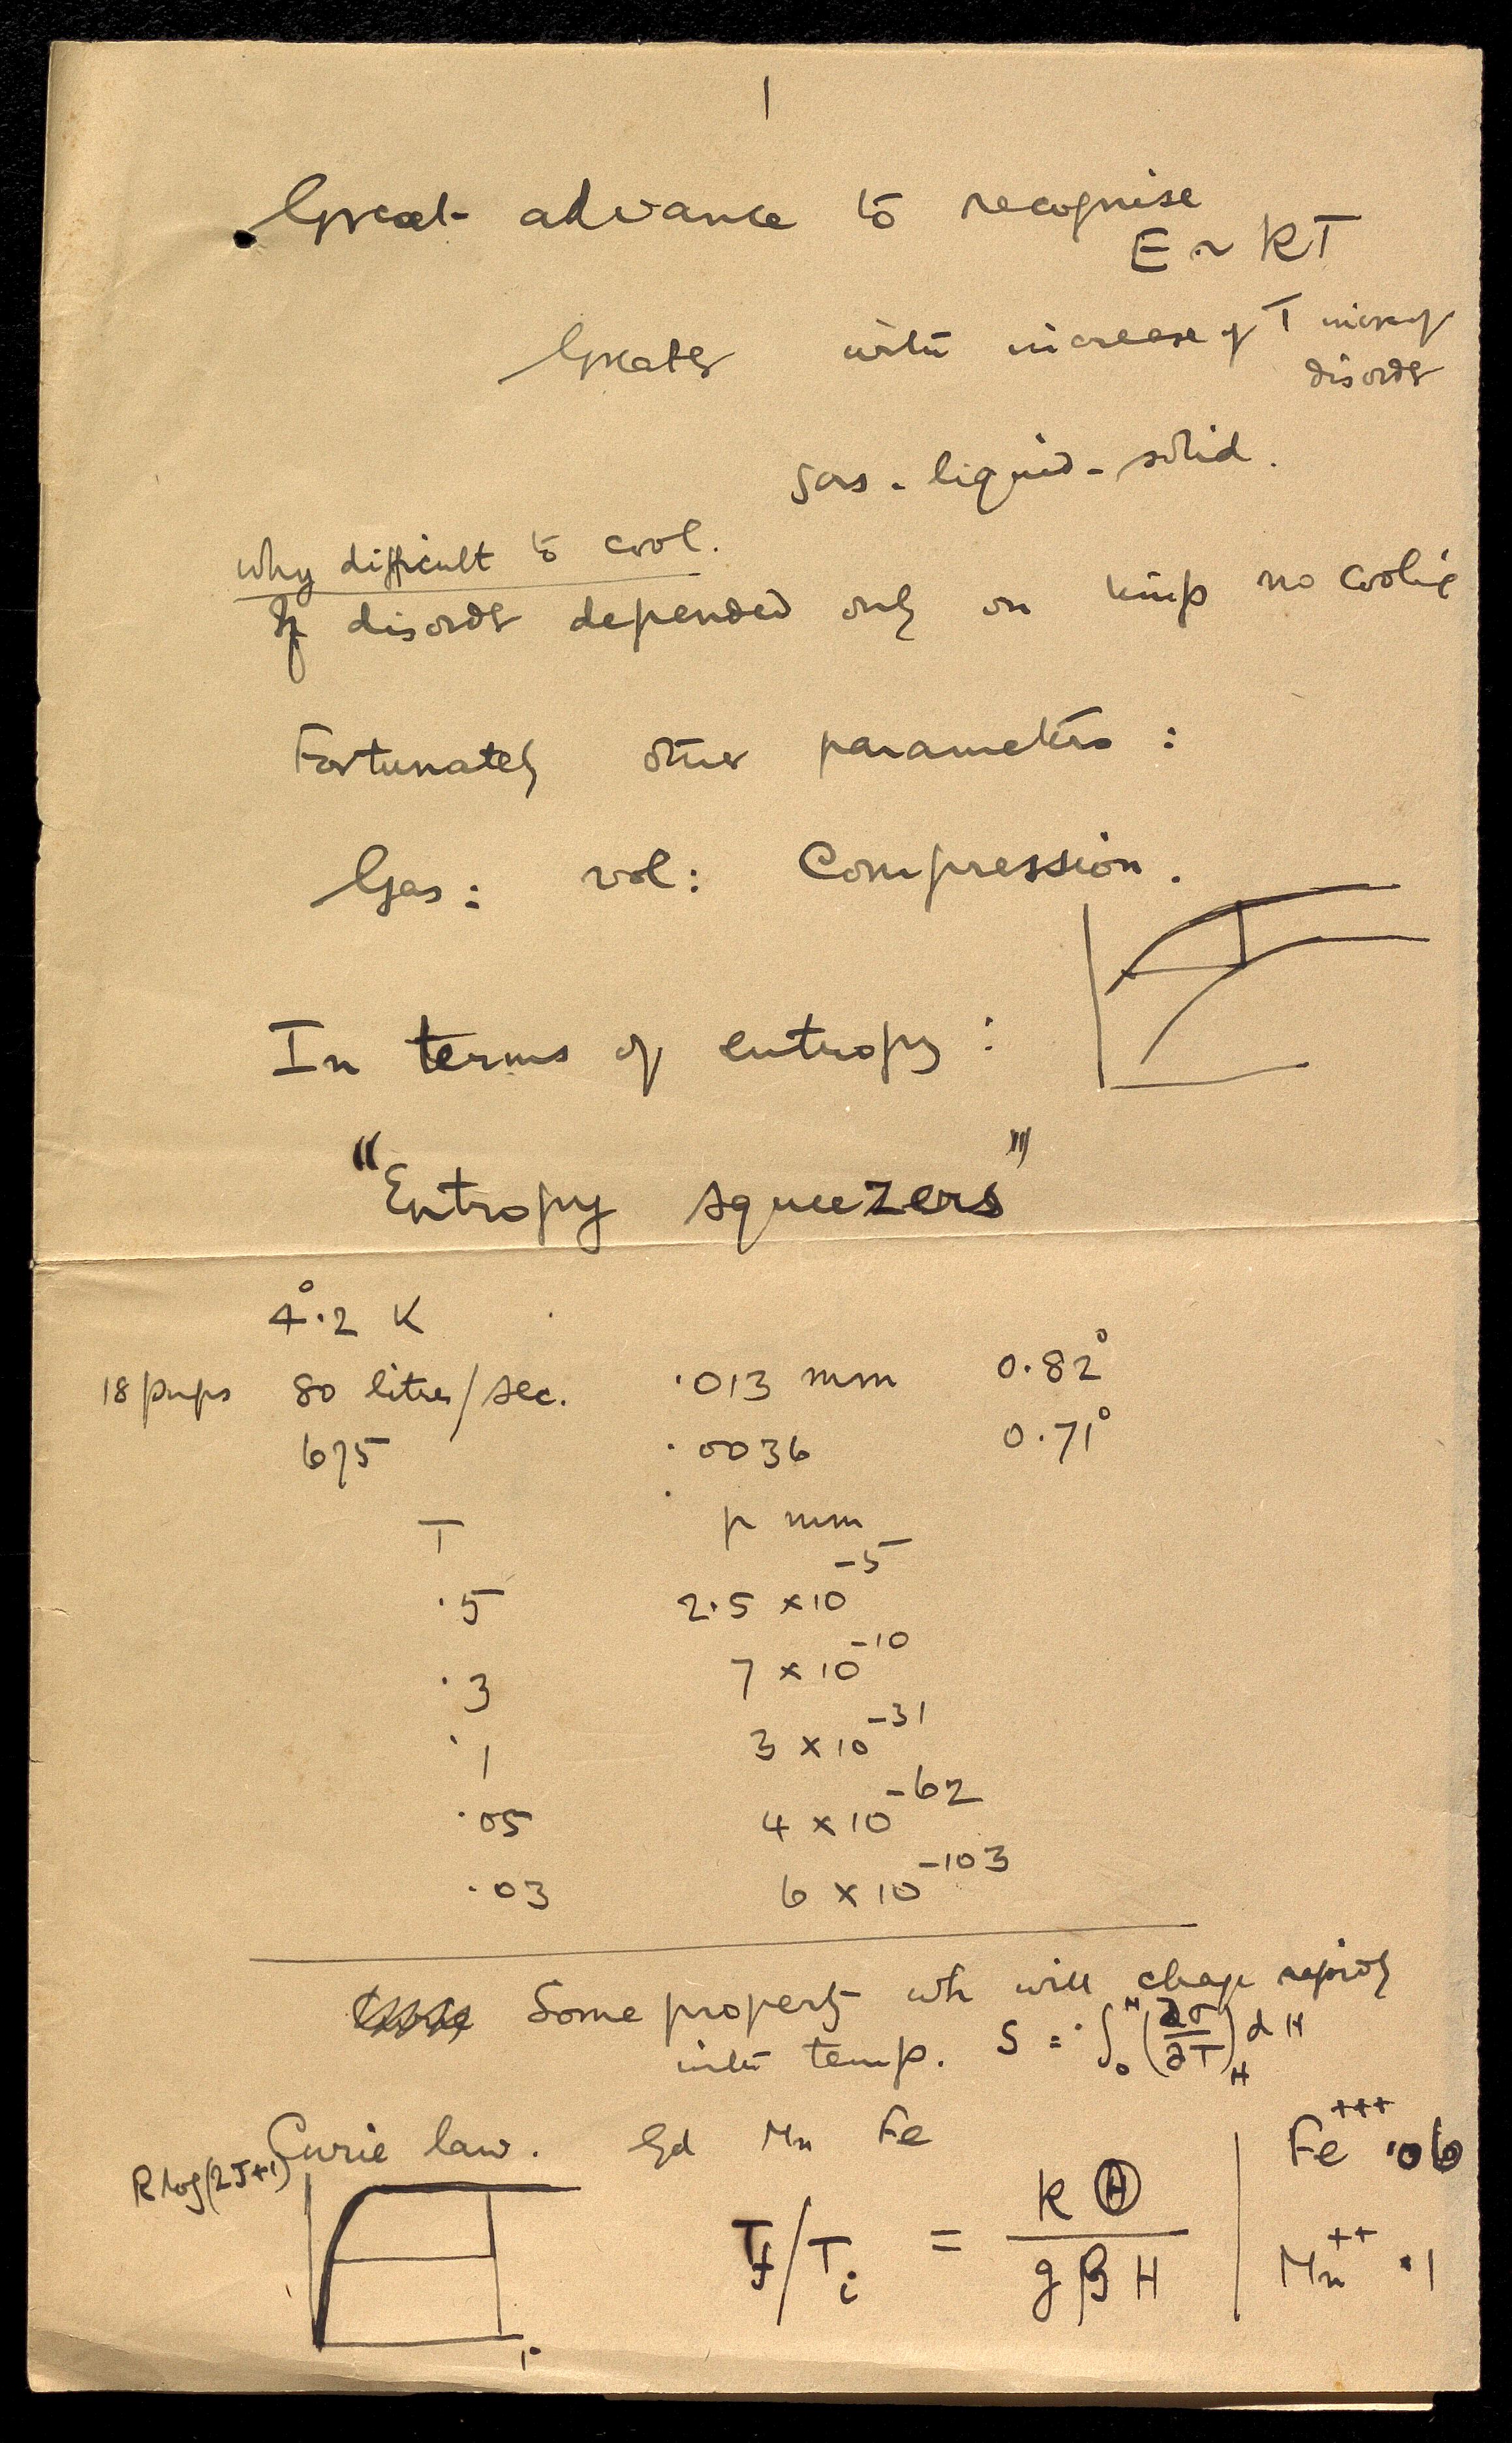 1
Great advance to recognise
E ~ kT
Greater with increase of T increase of
disorder
gas - liquid - solid.
Why difficult to cool.
If disorder depended only on temp no cooling
Fortunately other parameters :
Gas : vol : Compression.
In terms of entropy :
"Entropy squeezers"
4°.2 K
18 pumps 80 litres/sec. .013 mm 0.82°
675 .0036 0.71°
T p mm
.5 2.5 × 10⁻⁵
.3 7 × 10⁻¹⁰
.1 3 × 10⁻³¹
.05 4 × 10⁻⁶²
.03 6 × 10⁻¹⁰³
Some property wh will change rapidly
with temp. S = ∫₀ᴴ (∂σ/∂T)_H dH
Curie law. Gd Mn Fe
R log(2J+1)
T_f/T_i = kΘ / gβH
Fe⁺⁺⁺ .06
Mn⁺⁺ .1
1°